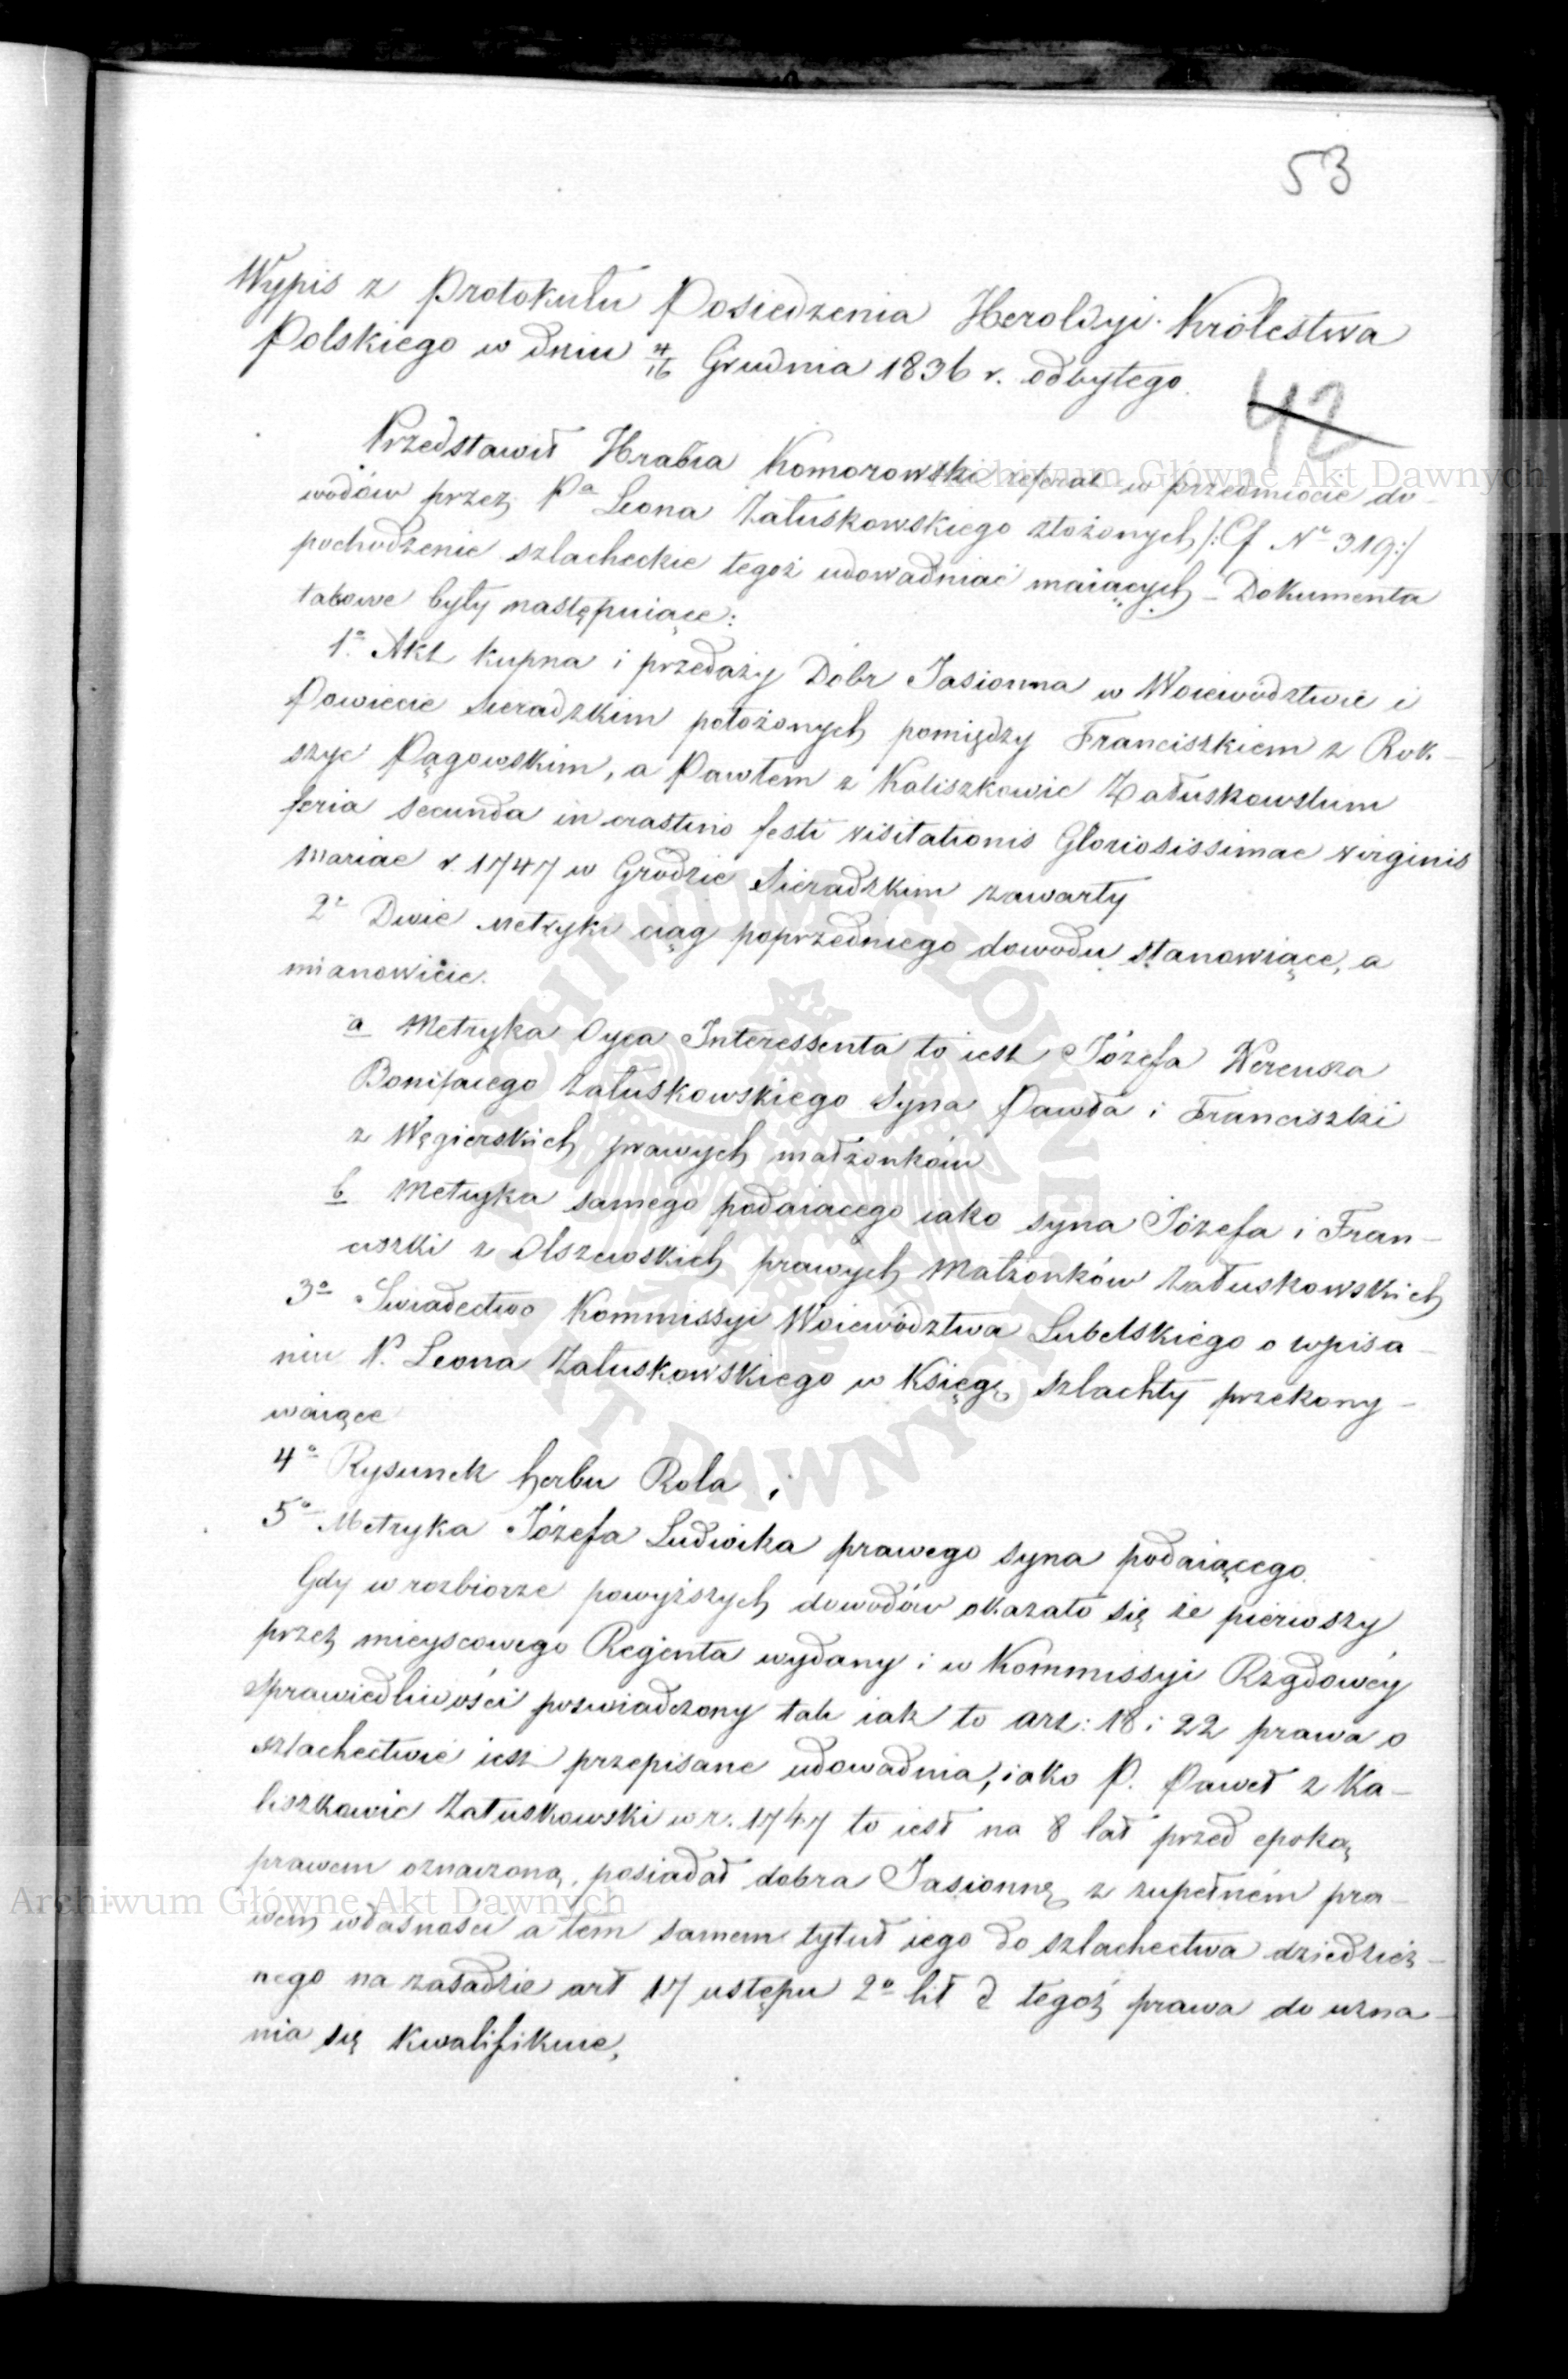 53
Wypis z Protokułu Posiedzenia Heroldyi Królestwa
Polskiego w dniu 4/16 Grudnia 1836 r. odbytego.
42
Przedstawił Hrabia Komorowski referat w przedmiocie do-
wodów przez Pa Leona Załuskowskiego złożonych /: Cf No 319:/
pochodzenie szlacheckie tegoż udowadniać maiących - Dokumenta
takowe były następuiące:
1o Akt kupna i przedaży Dóbr Jasionna w Woiewództwie i
Powiecie Sieradzkim położonych pomiędzy Franciszkiem z Rok-
szyc Pągowskim, a Pawłem z Kaliszkowic Załuskowskim
feria secunda in crastino festi visitationis Gloriosissimae virginis
Mariae r. 1747 w Grodzie Sieradzkim zawarty
2o Dwie Metryki ciąg poprzedniego dowodu stanowiące, a
mianowicie.
a Metryka Oyca Interessenta to iest Józefa Wereusza
Bonifacego Załuskowskiego Syna Pawła i Franciszki
z Węgierskich prawych małżonków
b Metryka samego podaiacego iako syna Józefa i Fran-
ciszki z Olszewskich prawych Małżonków Załuskowskich
3o Swiadectwo Kommissyi Woiewództwa Lubelskiego o wpisa-
niu P. Leona Załuskowskiego w Księgę szlachty przekony-
waiące
4o Rysunek herbu Rola i
5o Metryka Józefa Ludwika prawego syna podaiącego.
Gdy w rozbiorze powyższych dowodów okazało się że pierwszy
przez mieyscowego Regenta wydany i w Kommissyi Rządowéy
Sprawiedliwości poswiadczony tak iak to art: 18 i 22 prawa o
szlachectwie iest przepisane udowadnia, iako P. Paweł z Ka-
liszkowic Załuskowski w r. 1747 to iest na 8 lat przed epoką
prawem oznaczoną, posiadał dobra Jasionnę z zupełném pra-
wem własności a tem samem tytuł iego do szlachectwa dziedzicz-
nego na zasadzie art 17 ustępu 2o lit d tegoż prawa do uzna-
nia się kwalifikuie,
Archiwum Główne Akt Dawnych
Archiwum Główne Akt Dawnych
ARCHIWUM GŁÓWNE AKT DAWNYCH